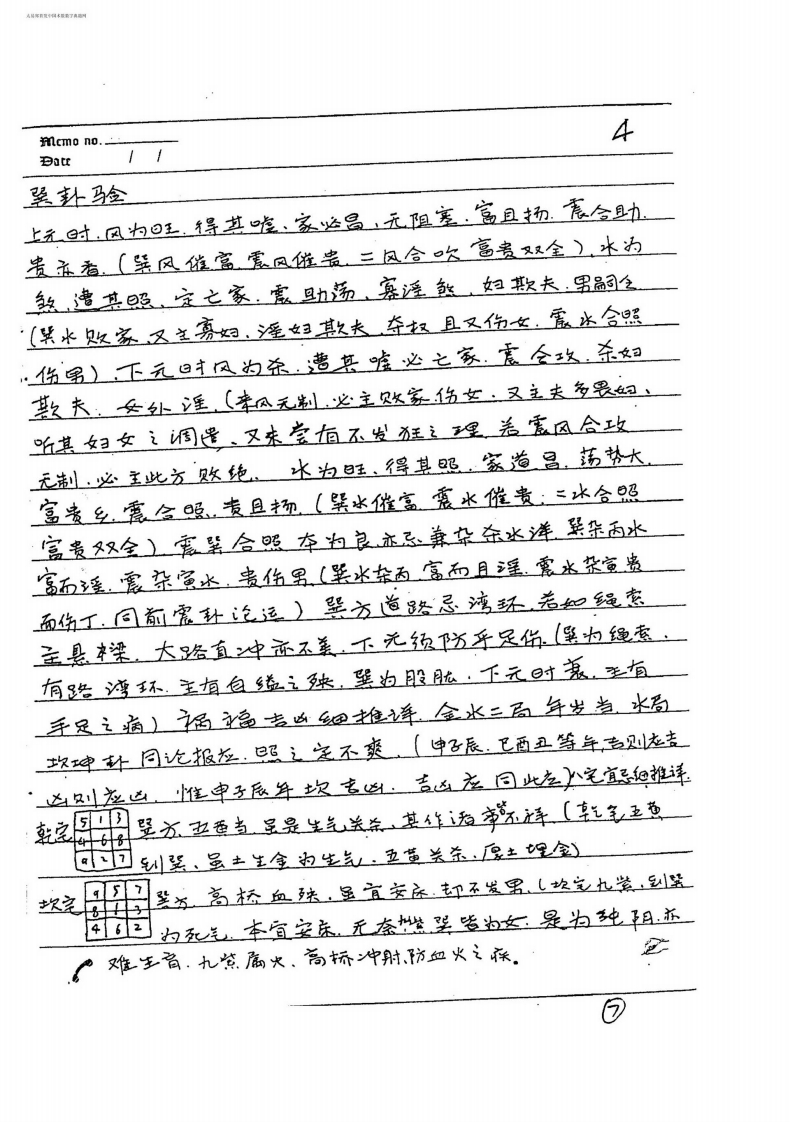 Memo no.
4
Date / /
巽卦验
上元时.风为旺.得其嘘.家必昌.无阻塞.富且扬.震合助.
贵亦香.(巽风催富.震风催贵.二风合吹富贵双全).水为
煞.遭其照.定亡家.震助荡.寡淫煞.妇欺夫.男嗣亡
(巽水败家.又主寡妇.淫妇欺夫.夺权且又伤女.震水合照
伤男).下元时风为杀.遭其嘘必亡家.震合攻.杀妇
欺夫.女外淫.(来风无制.必主败家伤女.又主夫多畏妇.
听其妇女之调遣.又未尝有不发狂之理.若震风合攻
无制.必主此方败绝.水为旺.得其照.家道昌.荡势大.
富贵乡.震合照.贵且扬.(巽水催富.震水催贵.二水合照
富贵双全)震巽合照本为良亦忌兼杂杀水洋.巽杂丙水
富而淫.震杂寅水.贵伤男(巽水杂丙.富而且淫.震水杂寅贵
而伤丁.同前震卦论运)巽方道路忌湾环.若如绳索
主悬梁.大路直冲亦不美.下元须防手足伤.(巽为绳索.
有路湾环.主有自缢之殃.巽为股肱.下元时衰.主有
手足之病)祸福吉凶细推详.金水二局年岁当.水局
坎坤卦同论报应.照之定不爽.(申子辰.巳酉丑等年.吉则应吉
凶则应凶.惟申子辰年坎吉凶.吉凶应同此应)八宅宜忌细推详.
乾宅 5 1 3 巽方.五黄当.虽是生气关杀.其作诸事不祥(乾宅五黄
4 6 8
9 2 7 到巽.虽土生金为生气.五黄关杀.厚土埋金)
坎宅 9 5 7 巽方.高桥血殃.虽宜安床.却不发男.(坎宅九紫.到巽
8 1 3
4 6 2 为死气.本宜安床.无奈九紫巽皆为女.是为纯阴.亦
难生育.九紫属火.高桥冲射.防血火之疾。
7